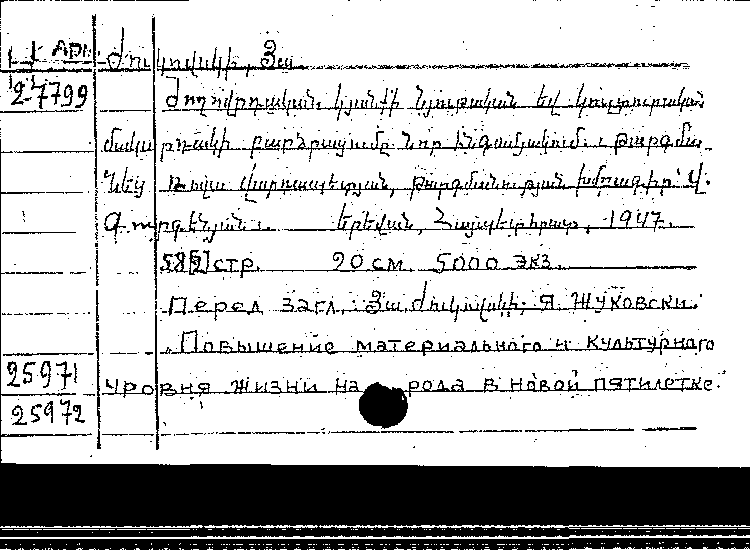 Арм. Ժուկովսկի, Յա
2-7799 Ժողովրդական կյանքի նյութական եվ կուլտուրական
մակարդակի բարձրացումը նոր հնգամյակում: Թարգմա-
նեց Ռոզա Վարդապետյան, թարգմանության խմբագիր՝ Վ.
Գուրգենյան: Երեվան, Հայպետհրատ, 1947.
58[5] стр. 20 см. 5000 экз.
Перед загл.: Յա. Ժուկովսկի; Я. Жуковски.
Повышение материального и культурного
25971 уровня жизни народа в новой пятилетке.
25972